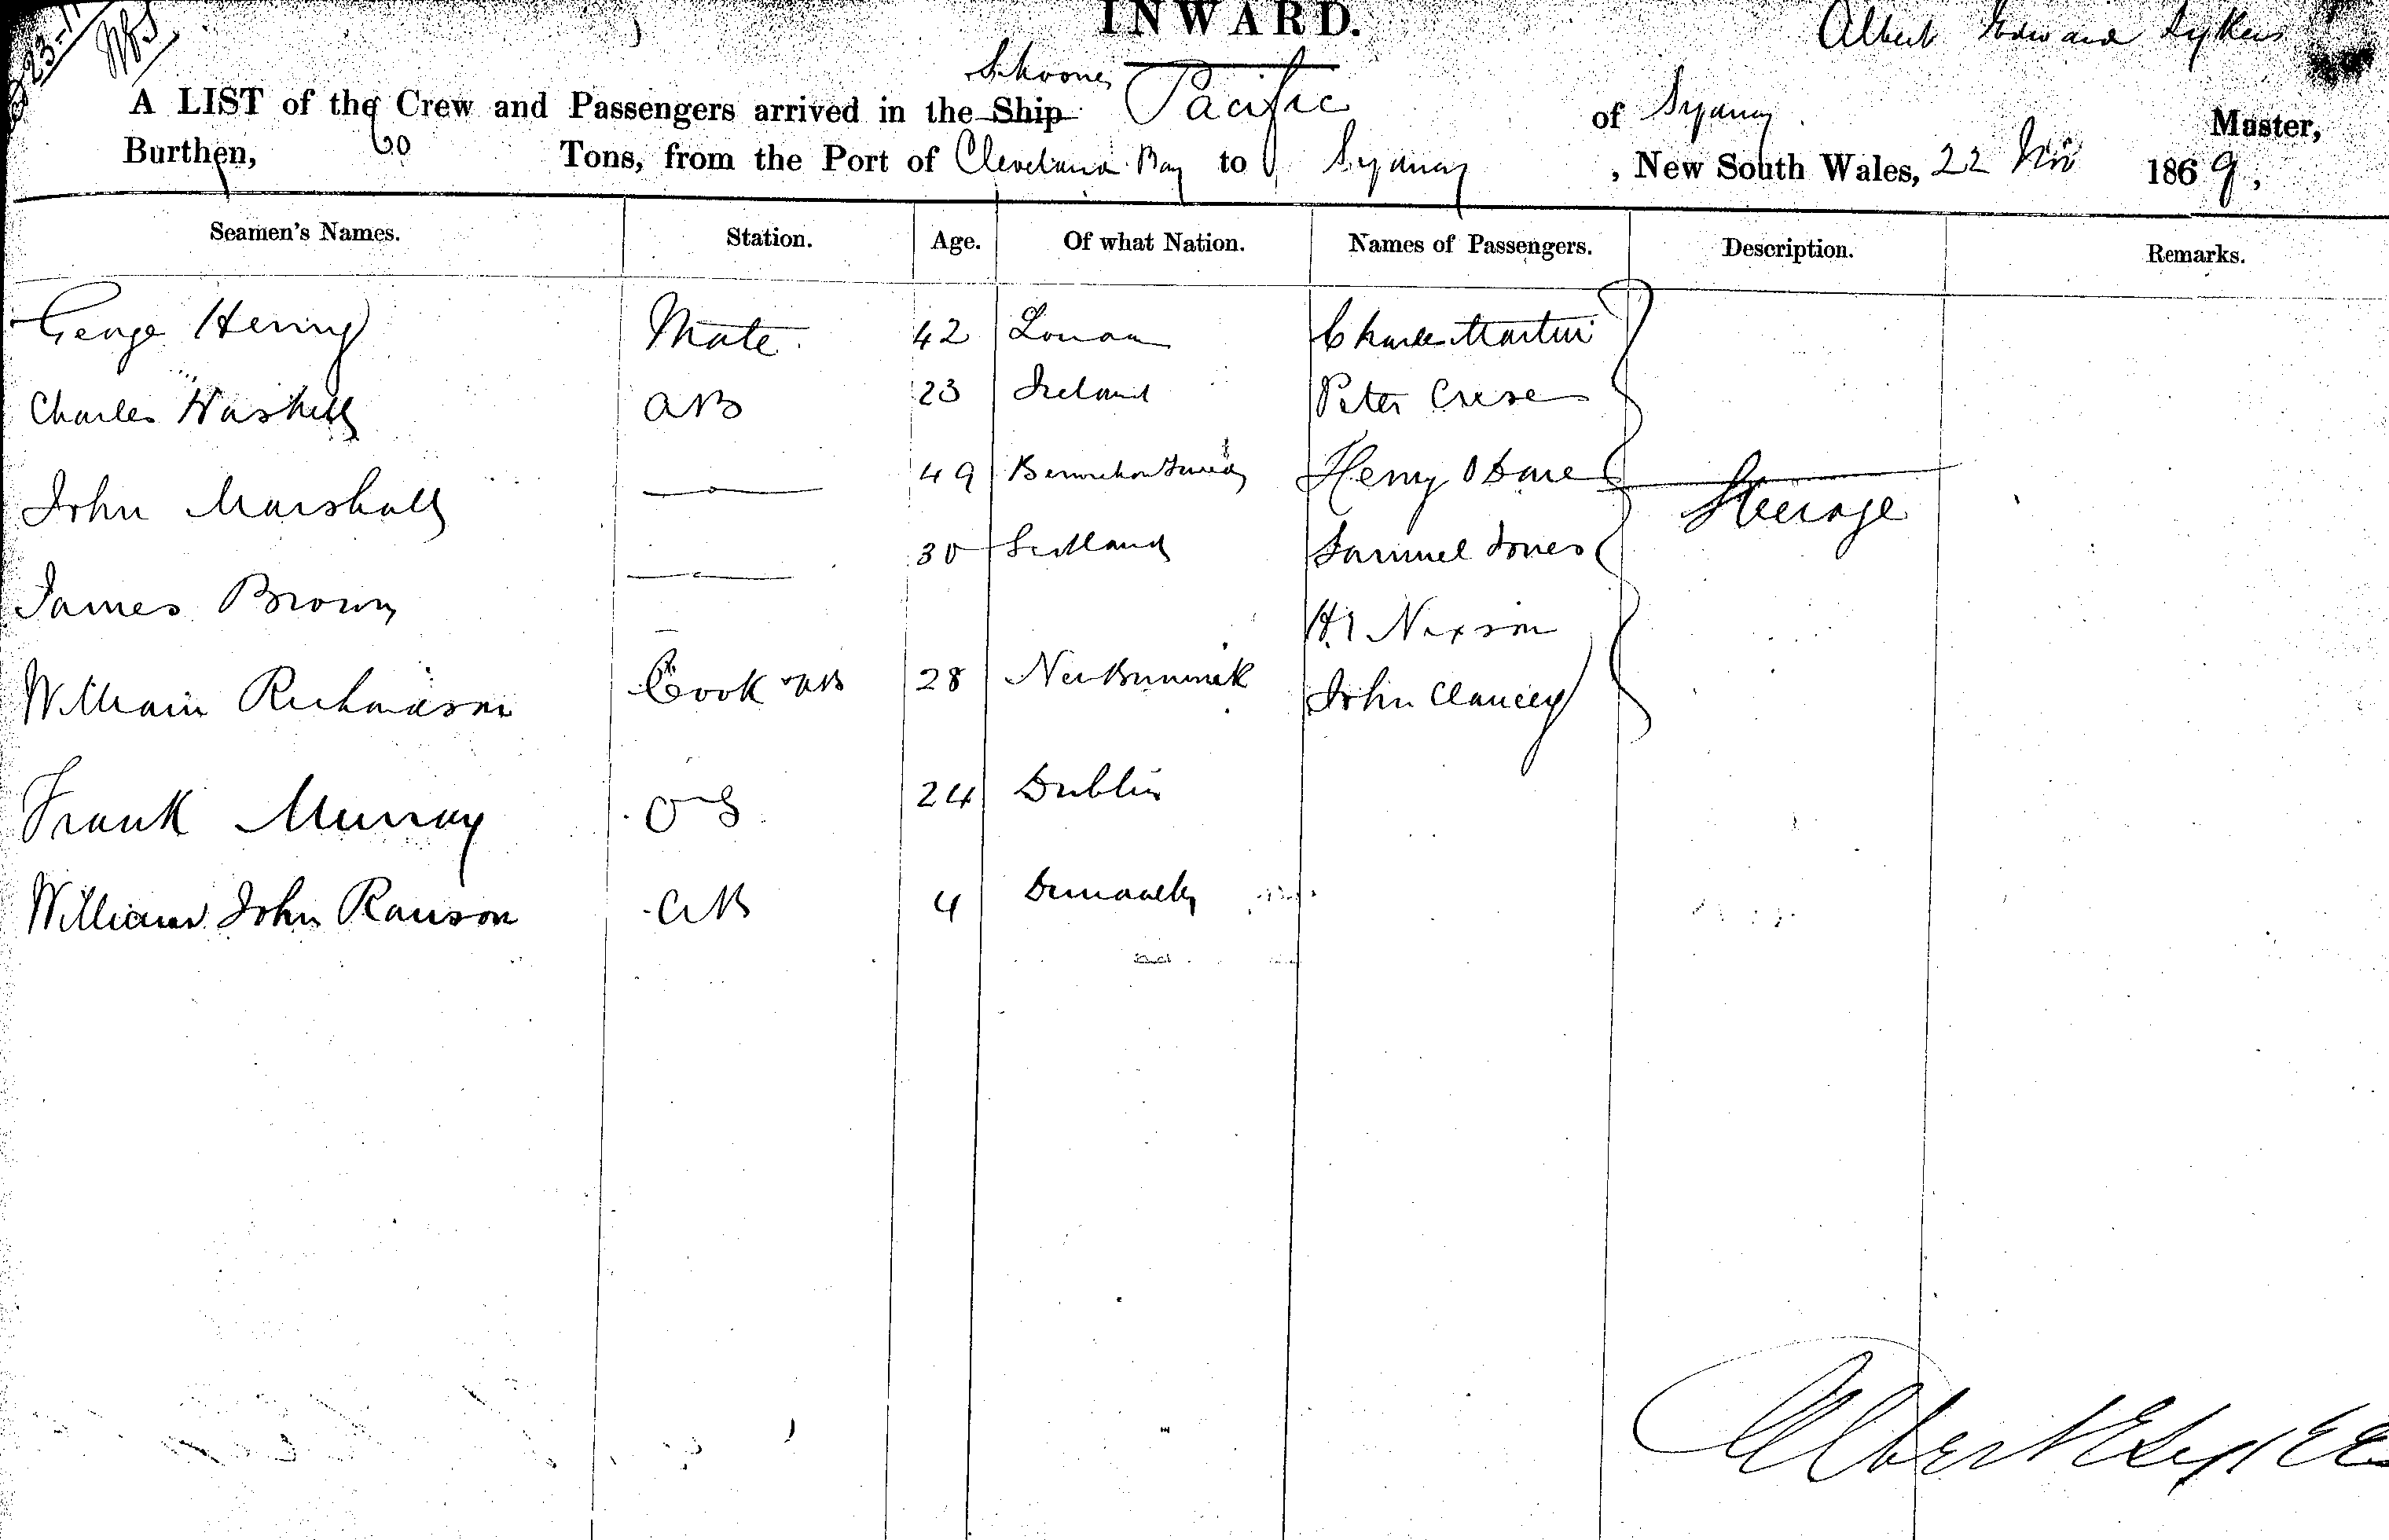 INWARD.
23-11
Albert Edward Sykes
Schooner
A LIST of the Crew and Passengers arrived in the Ship Pacific of Sydney Master,
Burthen, 60 Tons, from the Port of Cleveland Bay to Sydney, New South Wales, 22 Nov 1869,
Seamen's Names. Station. Age. Of what Nation. Names of Passengers. Description. Remarks.
George Henry Mate 42 London Charles Martin
Charles Haskell AB 23 Ireland Peter
John Marshall 49 Berwick on Tweed Henry O Hare Steerage
James Brown 30 Scotland Samuel Jones
H Nixson
William Richardson Cook AB 28 New Brunswick John Clancey
Frank Murray OS 24 Dublin
William John Ranson AB 4
Albert E Sykes